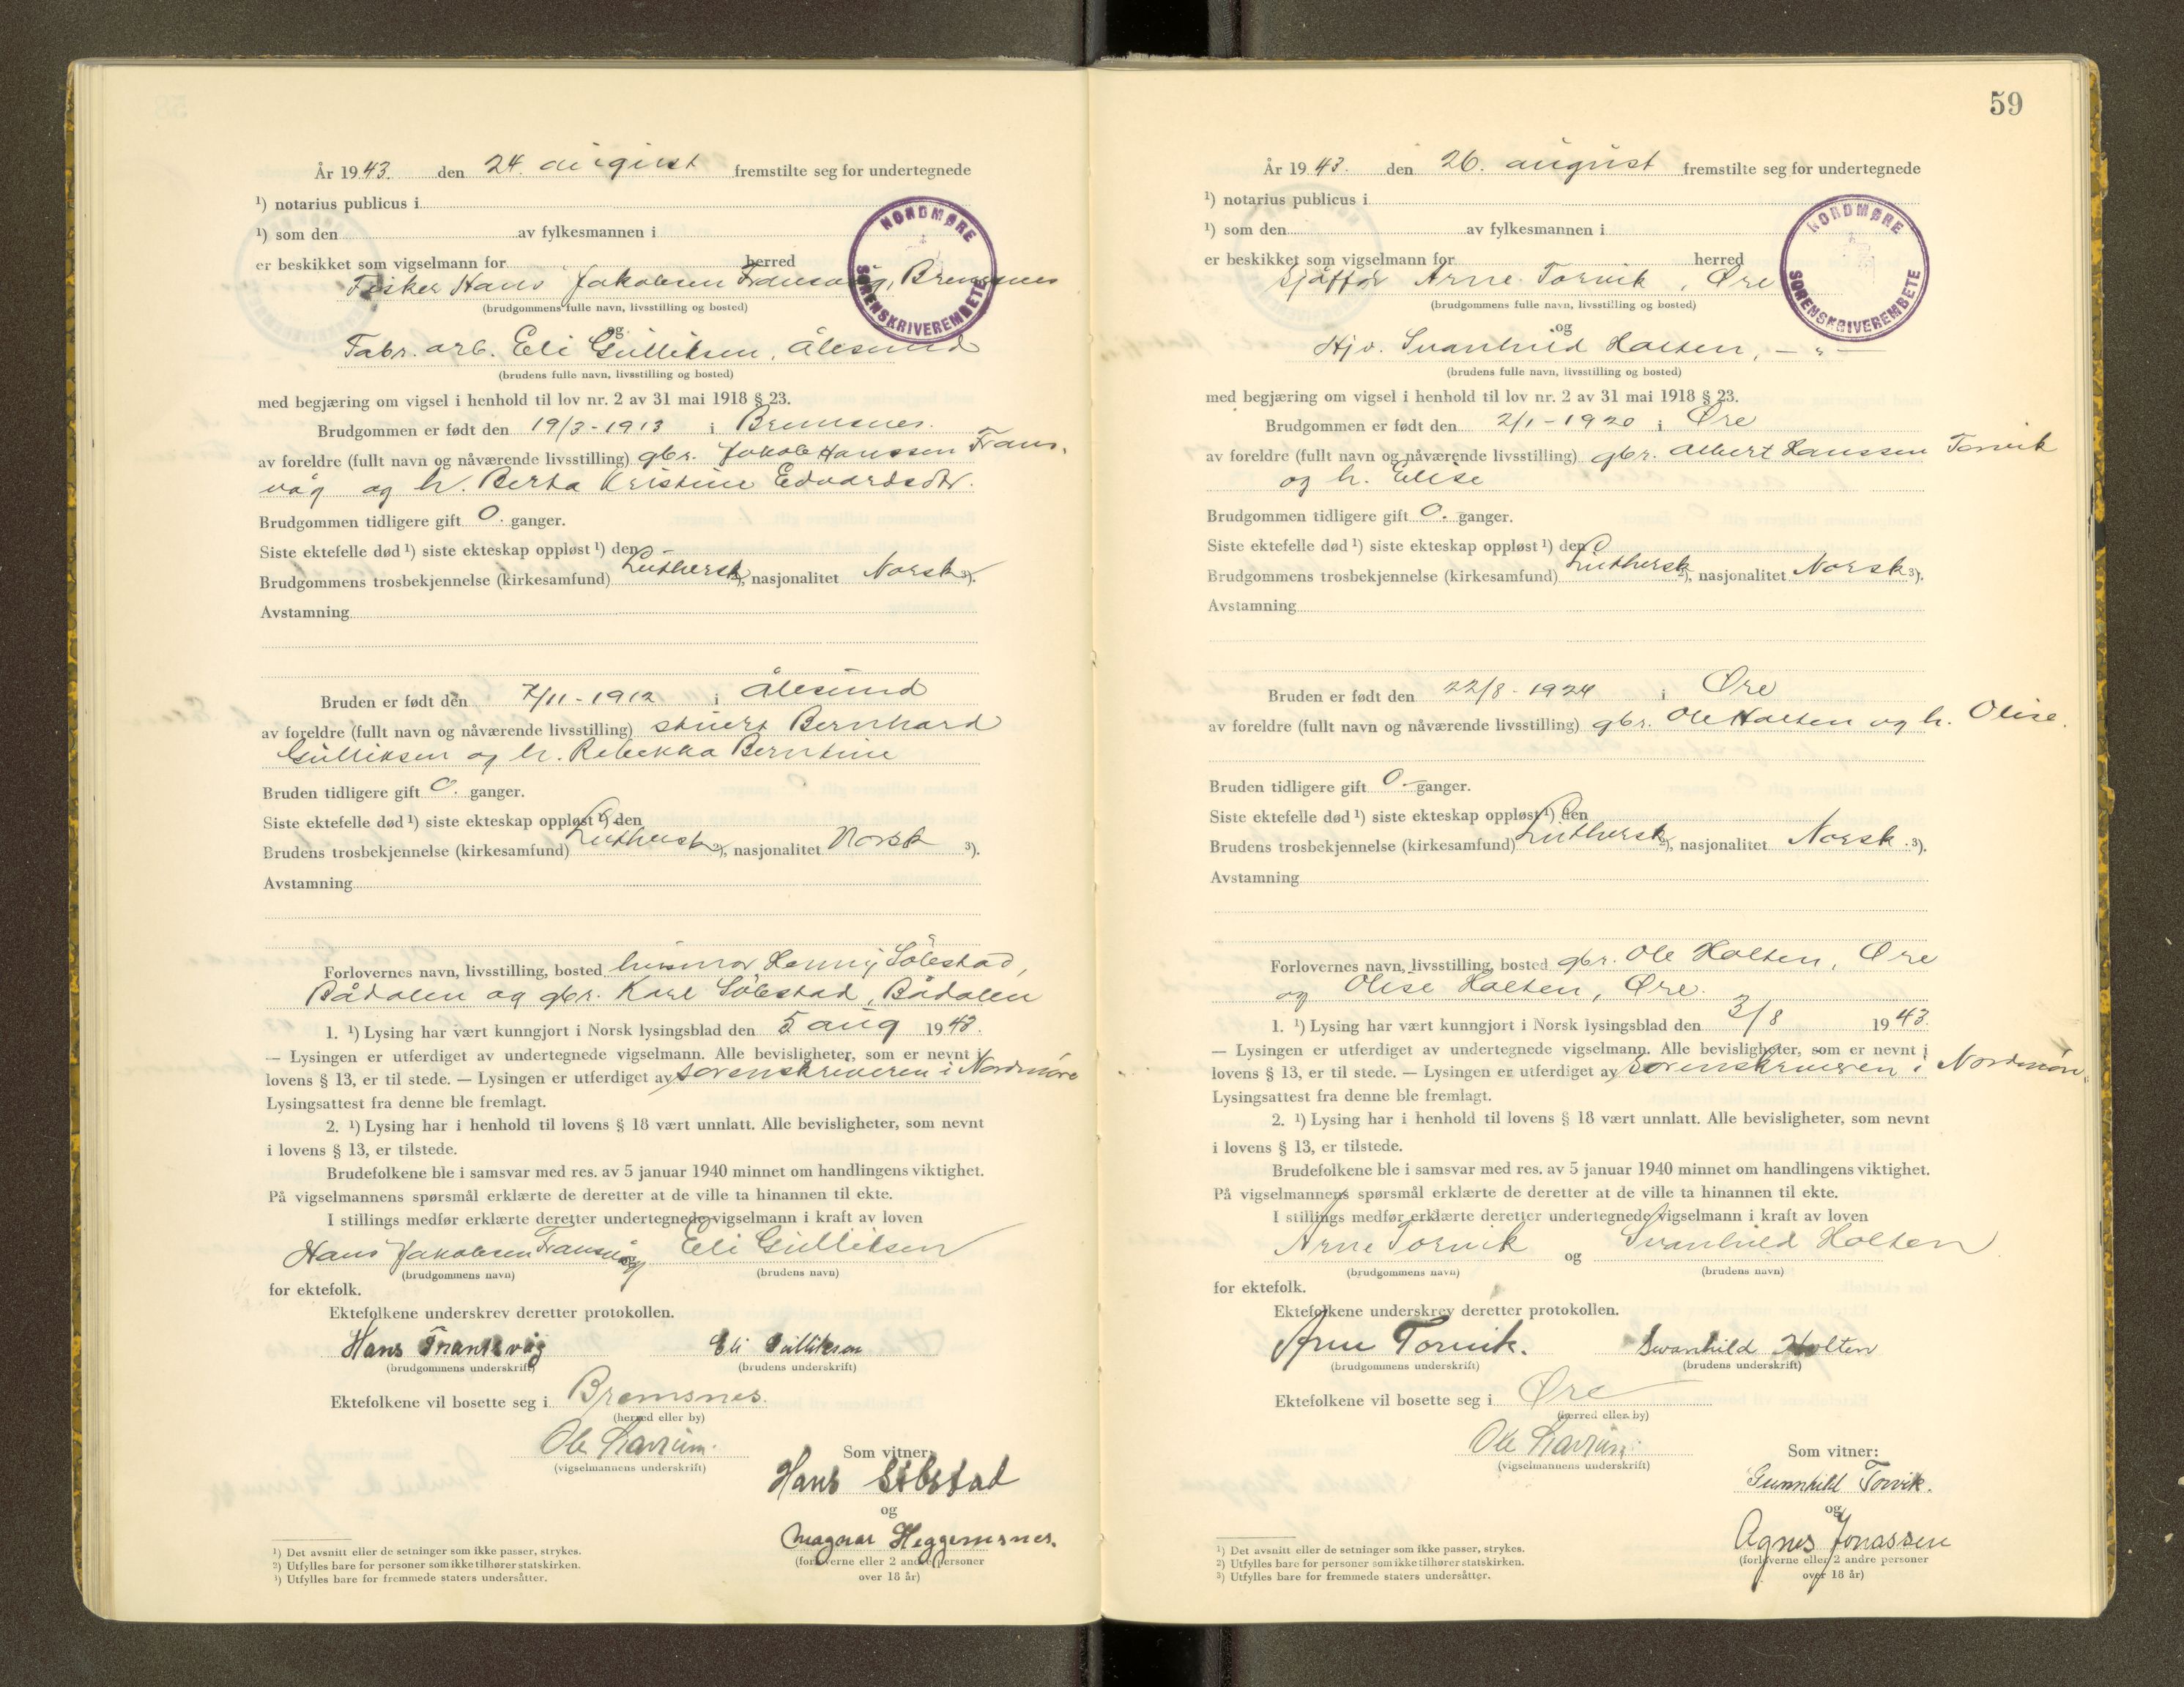 År 1943. den 24. august fremstilte seg for undertegnede
¹) notarius publicus i
¹) som den av fylkesmannen i
er beskikket som vigselmann for herred
NORDMØRE SORENSKRIVEREMBETE
Fisker Hans Jakobsen Fransvåg, Bremsnes
(brudgommens fulle navn, livsstilling og bosted)
og
Fabr. arb. Eli Gulliksen, Ålesund
(brudens fulle navn, livsstilling og bosted)
med begjæring om vigsel i henhold til lov nr. 2 av 31 mai 1918 § 23.
Brudgommen er født den 19/3-1913 i Bremsnes.
av foreldre (fullt navn og nåværende livsstilling) gbr. Jakob Hanssen Frans-
våg og h. Berta Kristine Edvardsdtr.
Brudgommen tidligere gift 0. ganger.
Siste ektefelle død ¹) siste ekteskap oppløst ¹) den —
Brudgommens trosbekjennelse (kirkesamfund) Luthersk ²), nasjonalitet Norsk ³).
Avstamning
Bruden er født den 7/11-1912 i Ålesund
av foreldre (fullt navn og nåværende livsstilling) stuert Bernhard
Gulliksen og h. Rebekka Berntine
Bruden tidligere gift 0. ganger.
Siste ektefelle død ¹) siste ekteskap oppløst ¹) den
Brudens trosbekjennelse (kirkesamfund) Luthersk ²), nasjonalitet Norsk ³).
Avstamning
Forlovernes navn, livsstilling, bosted husmor Henny Sölestad,
Bådalen og gbr. Karl Sölestad, Bådalen
1. ¹) Lysing har vært kunngjort i Norsk lysingsblad den 5 aug 1943.
— Lysingen er utferdiget av undertegnede vigselmann. Alle bevisligheter, som er nevnt i
lovens § 13, er til stede. — Lysingen er utferdiget av sorenskriveren i Nordmöre
Lysingsattest fra denne ble fremlagt.
2. ¹) Lysing har i henhold til lovens § 18 vært unnlatt. Alle bevisligheter, som nevnt
i lovens § 13, er tilstede.
Brudefolkene ble i samsvar med res. av 5 januar 1940 minnet om handlingens viktighet.
På vigselmannens spørsmål erklærte de deretter at de ville ta hinannen til ekte.
I stillings medfør erklærte deretter undertegnede vigselmann i kraft av loven
Hans Jakobsen Fransvåg og Eli Gulliksen
(brudgommens navn) (brudens navn)
for ektefolk.
Ektefolkene underskrev deretter protokollen.
Hans Fransvåg Eli Gulliksen
(brudgommens underskrift) (brudens underskrift)
Ektefolkene vil bosette seg i Bremsnes.
(herred eller by)
Ole
(vigselmannens underskrift)
Som vitner:
Hans
og
Magnar Heggemsnes.
(forloverne eller 2 andre personer
over 18 år)
¹) Det avsnitt eller de setninger som ikke passer, strykes.
²) Utfylles bare for personer som ikke tilhører statskirken.
³) Utfylles bare for fremmede staters undersåtter.
59
År 1943. den 26. august fremstilte seg for undertegnede
¹) notarius publicus i
¹) som den av fylkesmannen i
er beskikket som vigselmann for herred
NORDMØRE SORENSKRIVEREMBETE
Sjåfför Arne Torvik, Øre
(brudgommens fulle navn, livsstilling og bosted)
og
Hjv. Svanhild Holten, — " —
(brudens fulle navn, livsstilling og bosted)
med begjæring om vigsel i henhold til lov nr. 2 av 31 mai 1918 § 23.
Brudgommen er født den 2/1-1920 i Øre
av foreldre (fullt navn og nåværende livsstilling) gbr. Albert Hanssen Torvik
og h. Elise
Brudgommen tidligere gift 0. ganger.
Siste ektefelle død ¹) siste ekteskap oppløst ¹) den
Brudgommens trosbekjennelse (kirkesamfund) Luthersk ²), nasjonalitet Norsk ³).
Avstamning
Bruden er født den 22/8-1924 i Øre
av foreldre (fullt navn og nåværende livsstilling) gbr. Ole Holten og h. Olise.
Bruden tidligere gift 0 ganger.
Siste ektefelle død ¹) siste ekteskap oppløst ¹) den
Brudens trosbekjennelse (kirkesamfund) Luthersk ²), nasjonalitet Norsk ³).
Avstamning
Forlovernes navn, livsstilling, bosted gbr. Ole Holten, Øre
og Olise Holten, Øre.
1. ¹) Lysing har vært kunngjort i Norsk lysingsblad den 3/8 1943.
— Lysingen er utferdiget av undertegnede vigselmann. Alle bevisligheter, som er nevnt i
lovens § 13, er til stede. — Lysingen er utferdiget av Sorenskriveren i Nordmöre
Lysingsattest fra denne ble fremlagt.
2. ¹) Lysing har i henhold til lovens § 18 vært unnlatt. Alle bevisligheter, som nevnt
i lovens § 13, er tilstede.
Brudefolkene ble i samsvar med res. av 5 januar 1940 minnet om handlingens viktighet.
På vigselmannens spørsmål erklærte de deretter at de ville ta hinannen til ekte.
I stillings medfør erklærte deretter undertegnede vigselmann i kraft av loven
Arne Torvik og Svanhild Holten
(brudgommens navn) (brudens navn)
for ektefolk.
Ektefolkene underskrev deretter protokollen.
Arne Torvik. Swanhild Holten
(brudgommens underskrift) (brudens underskrift)
Ektefolkene vil bosette seg i Øre
(herred eller by)
Ole
(vigselmannens underskrift)
Som vitner:
Gunnhild Torvik.
og
Agnes Jonassen
(forloverne eller 2 andre personer
over 18 år)
¹) Det avsnitt eller de setninger som ikke passer, strykes.
²) Utfylles bare for personer som ikke tilhører statskirken.
³) Utfylles bare for fremmede staters undersåtter.